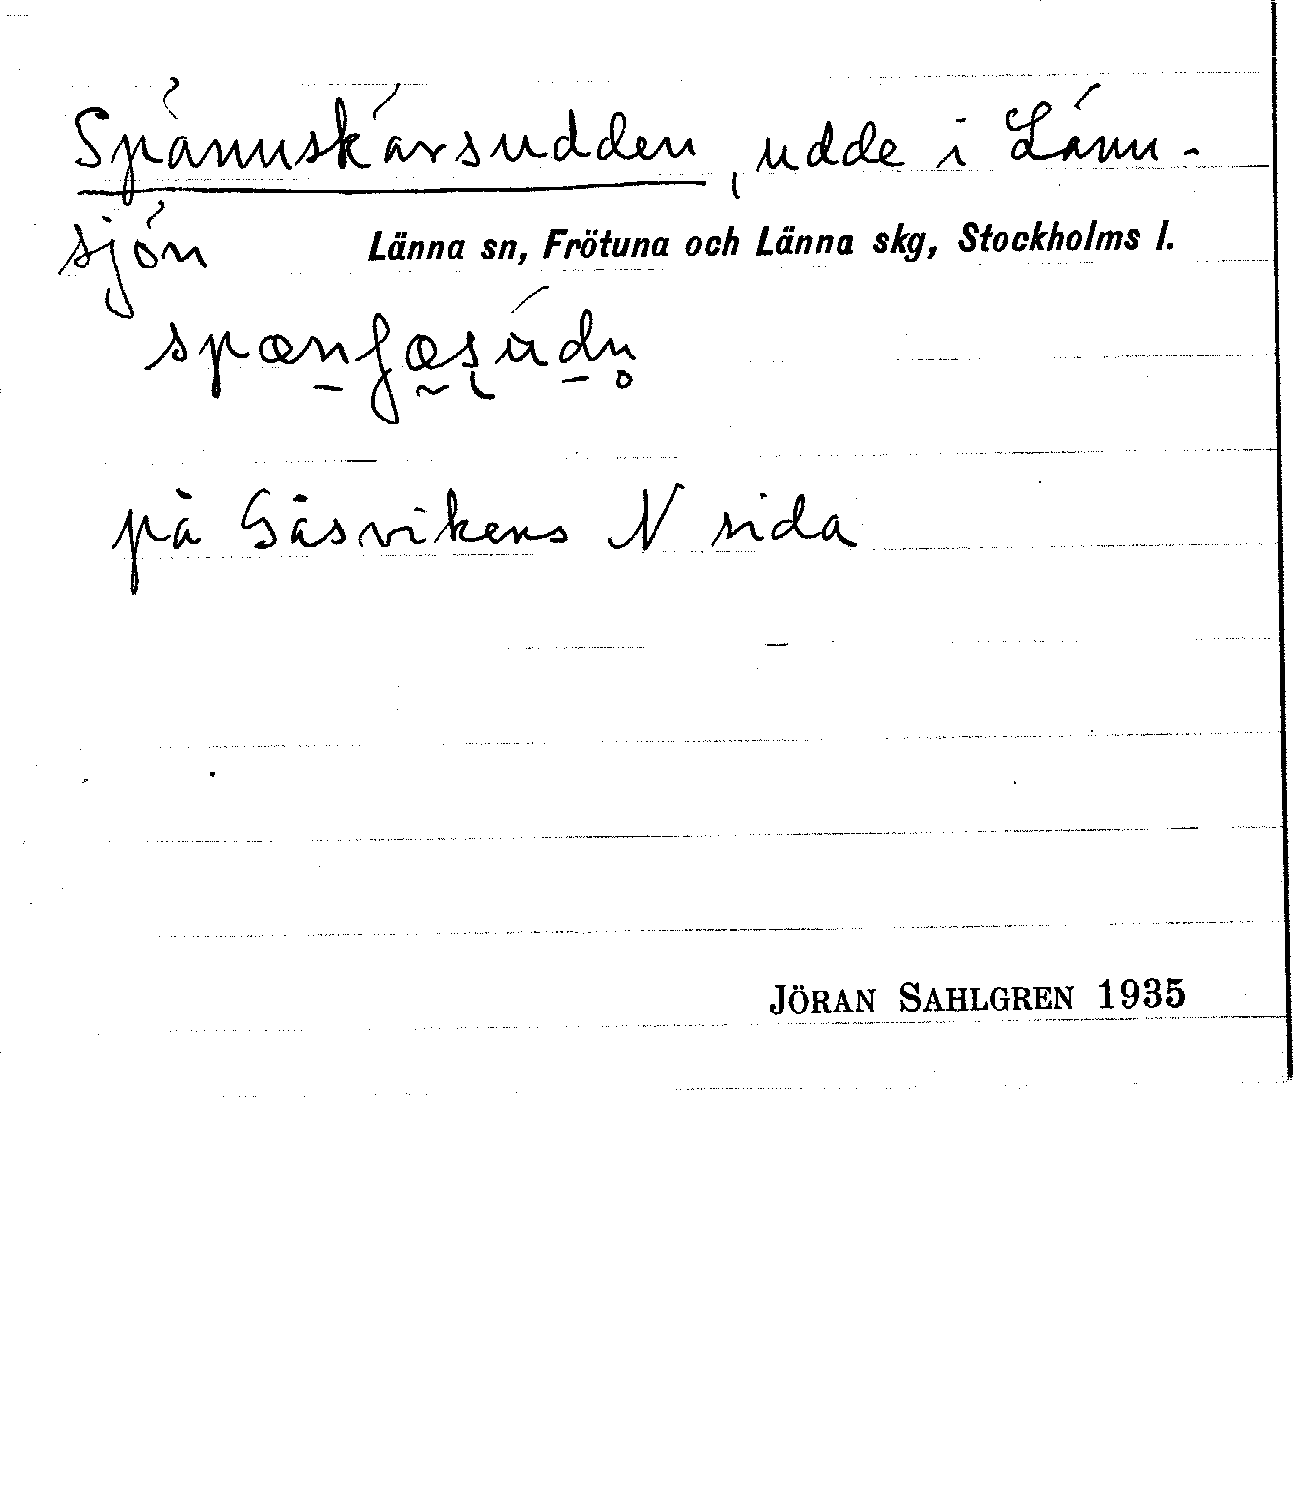 Spännskärsudden, udde i Länn-
sjön Länna sn, Frötuna och Länna skg, Stockholms l.
på Gåsvikens N sida
JÖRAN SAHLGREN 1935